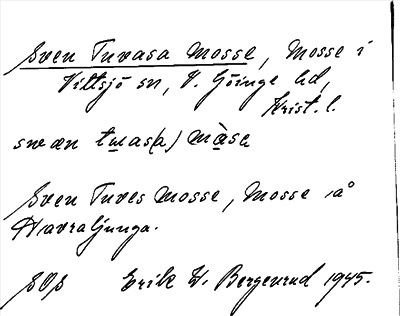 Sven Tuvasa Mosse, Mosse i
Vittsjö sn, V. Göinge hd,
Krist. l.
sven tuvas(a) måse
Sven Tuves Mosse, Mosse å
Havraljunga.
SOS Erik W. Bergenrud 1945.